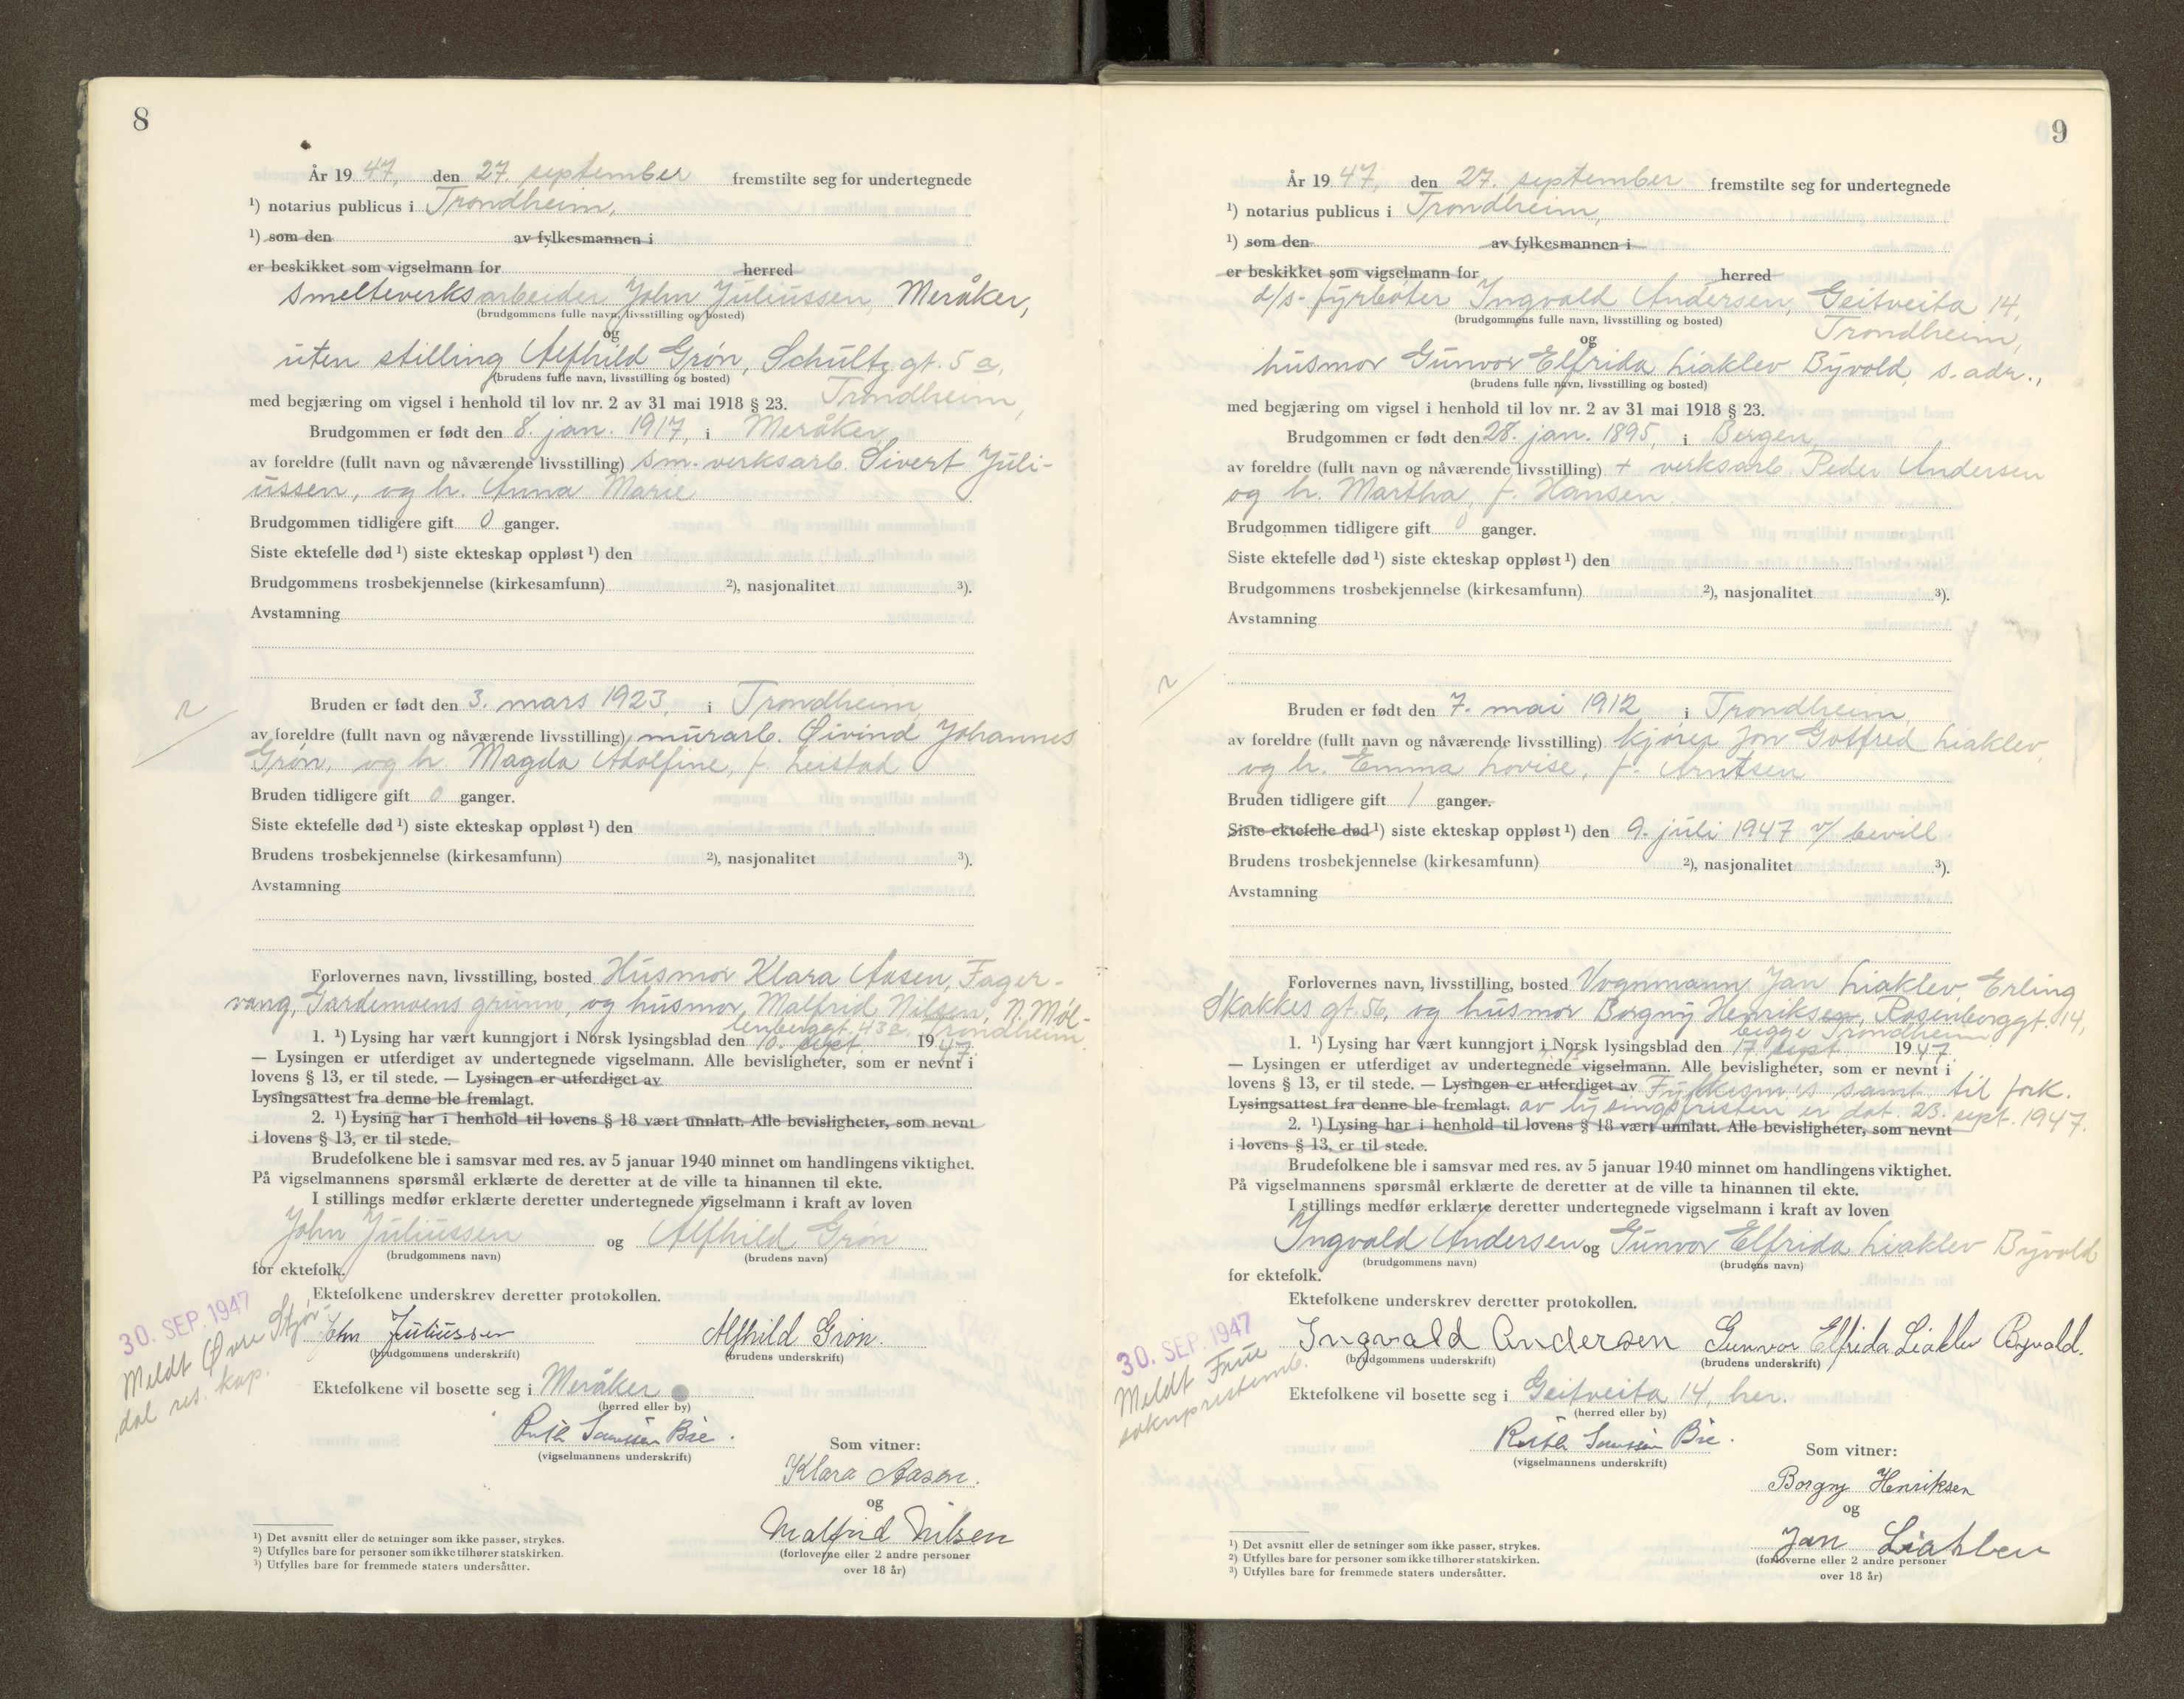 8
År 19 47, den 27. september fremstilte seg for undertegnede
¹) notarius publicus i Trondheim,
¹) som den av fylkesmannen i
er beskikket som vigselmann for herred
smelteverksarbeider John Juliussen, Meråker,
(brudgommens fulle navn, livsstilling og bosted)
og
uten stilling Alfhild Grøn, Schultz gt. 5 a,
(brudens fulle navn, livsstilling og bosted)
Trondheim,
med begjæring om vigsel i henhold til lov nr. 2 av 31 mai 1918 § 23.
Brudgommen er født den 8. jan. 1917, i Meråker
av foreldre (fullt navn og nåværende livsstilling) sm.verksarb. Sivert Juli-
ussen, og h. Anna Marie
Brudgommen tidligere gift 0 ganger.
Siste ektefelle død ¹) siste ekteskap oppløst ¹) den
Brudgommens trosbekjennelse (kirkesamfunn) ²), nasjonalitet ³).
Avstamning
Bruden er født den 3. mars 1923, i Trondheim
av foreldre (fullt navn og nåværende livsstilling) murarb. Øivind Johannes
Grøn, og h. Magda Adolfine, f. Leistad
Bruden tidligere gift 0 ganger.
Siste ektefelle død ¹) siste ekteskap oppløst ¹) den
Brudens trosbekjennelse (kirkesamfunn) ²), nasjonalitet ³).
Avstamning
Forlovernes navn, livsstilling, bosted Husmor Klara Aasen, Fager-
vang, Gardemoens grunn, og husmor Malfrid Nilsen, N. Møl-
lenberggt. 43a Trondheim.
1. ¹) Lysing har vært kunngjort i Norsk lysingsblad den 10. sept. 19 47.
— Lysingen er utferdiget av undertegnede vigselmann. Alle bevisligheter, som er nevnt i
lovens § 13, er til stede. — Lysingen er utferdiget av
Lysingsattest fra denne ble fremlagt.
2. ¹) Lysing har i henhold til lovens § 18 vært unnlatt. Alle bevisligheter, som nevnt
i lovens § 13, er til stede.
Brudefolkene ble i samsvar med res. av 5 januar 1940 minnet om handlingens viktighet.
På vigselmannens spørsmål erklærte de deretter at de ville ta hinannen til ekte.
I stillings medfør erklærte deretter undertegnede vigselmann i kraft av loven
John Juliussen og Alfhild Grøn
(brudgommens navn) (brudens navn)
for ektefolk.
Ektefolkene underskrev deretter protokollen.
30. SEP. 1947
Meldt Øvre Stjør-
dal res. kap.
John Juliussen Alfhild Grøn.
(brudgommens underskrift) (brudens underskrift)
Ektefolkene vil bosette seg i Meråker
(herred eller by)
Ruth Bie.
(vigselmannens underskrift)
Som vitner:
Klara Aasen.
og
Malfrid Nilsen
(forloverne eller 2 andre personer
over 18 år)
¹) Det avsnitt eller de setninger som ikke passer, strykes.
²) Utfylles bare for personer som ikke tilhører statskirken.
³) Utfylles bare for fremmede staters undersåtter.
9
År 19 47, den 27. september fremstilte seg for undertegnede
¹) notarius publicus i Trondheim,
¹) som den av fylkesmannen i
er beskikket som vigselmann for herred
d/s- fyrbøter Ingvald Andersen, Geitveita 14,
(brudgommens fulle navn, livsstilling og bosted)
Trondheim,
og
husmor Gunvor Elfrida Liaklev Byvold, s. adr.,
(brudens fulle navn, livsstilling og bosted)
med begjæring om vigsel i henhold til lov nr. 2 av 31 mai 1918 § 23.
Brudgommen er født den 28. jan. 1895, i Bergen,
av foreldre (fullt navn og nåværende livsstilling) + verksarb. Peder Andersen
og h. Martha, f. Hansen
Brudgommen tidligere gift 0 ganger.
Siste ektefelle død ¹) siste ekteskap oppløst ¹) den
Brudgommens trosbekjennelse (kirkesamfunn) ²), nasjonalitet ³).
Avstamning
Bruden er født den 7. mai 1912 i Trondheim,
av foreldre (fullt navn og nåværende livsstilling) kjører Jon Gotfred Liaklev,
og h. Emma Lovise, f. Arntsen
Bruden tidligere gift 1 ganger.
Siste ektefelle død ¹) siste ekteskap oppløst ¹) den 9. juli 1947 v/ bevill.
Brudens trosbekjennelse (kirkesamfunn) ²), nasjonalitet ³).
Avstamning
Forlovernes navn, livsstilling, bosted Vognmann Jan Liaklev, Erling
Skakkes gt 56, og husmor Borgny Henriksen, Rosenborggt. 14,
begge Trondheim
1. ¹) Lysing har vært kunngjort i Norsk lysingsblad den 17 sept 19 47
— Lysingen er utferdiget av undertegnede vigselmann. Alle bevisligheter, som er nevnt i
lovens § 13, er til stede. — Lysingen er utferdiget av Fylkesm's samt. til fork.
Lysingsattest fra denne ble fremlagt. av lysingsfristen er dat. 23. sept. 1947.
2. ¹) Lysing har i henhold til lovens § 18 vært unnlatt. Alle bevisligheter, som nevnt
i lovens § 13, er til stede.
Brudefolkene ble i samsvar med res. av 5 januar 1940 minnet om handlingens viktighet.
På vigselmannens spørsmål erklærte de deretter at de ville ta hinannen til ekte.
I stillings medfør erklærte deretter undertegnede vigselmann i kraft av loven
Ingvald Andersen og Gunvor Elfrida Liaklev Byvold
(brudgommens navn) (brudens navn)
for ektefolk.
Ektefolkene underskrev deretter protokollen.
30. SEP. 1947
Meldt Frue
sokneprestemb.
Ingvald Andersen Gunvor Elfrida Liaklev Byvold.
(brudgommens underskrift) (brudens underskrift)
Ektefolkene vil bosette seg i Geitveita 14, her.
(herred eller by)
Ruth Bie.
(vigselmannens underskrift)
Som vitner:
Borgny Henriksen
og
Jan Liaklev
(forloverne eller 2 andre personer
over 18 år)
¹) Det avsnitt eller de setninger som ikke passer, strykes.
²) Utfylles bare for personer som ikke tilhører statskirken.
³) Utfylles bare for fremmede staters undersåtter.